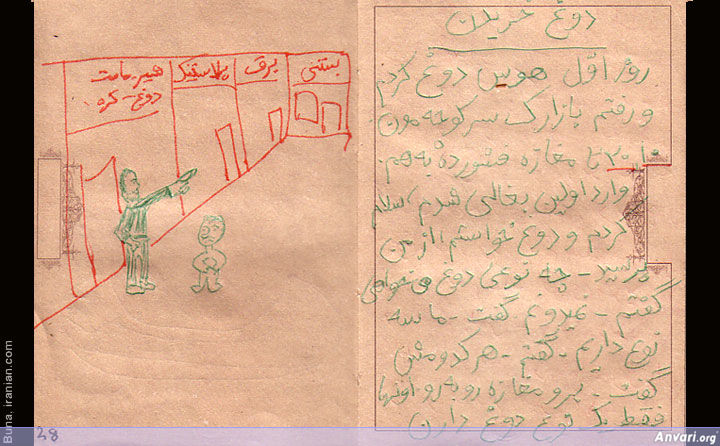 دوغ خریدن
روز اوّل هوس دوغ کردم
و رفتم بازارک سر کوچه مون
تا مغازه فشورده به هم.
وارد اولین بغالی شدم، سلام
کردم و دوغ خواستم، از من
پرسید - چه نوعی دوغ می خواهی
گفتم - نمیدونم گفت - ما سه
نوع داریم - گفتم - هر کدومش
گفت - برو مغازه رو به رو اونها
فقط یک نوع دوغ دارن
بستنی
برق
پلاستیک
پنیر - ماست
دوغ - کره
28
Buna, iranian.com
Anvari.org